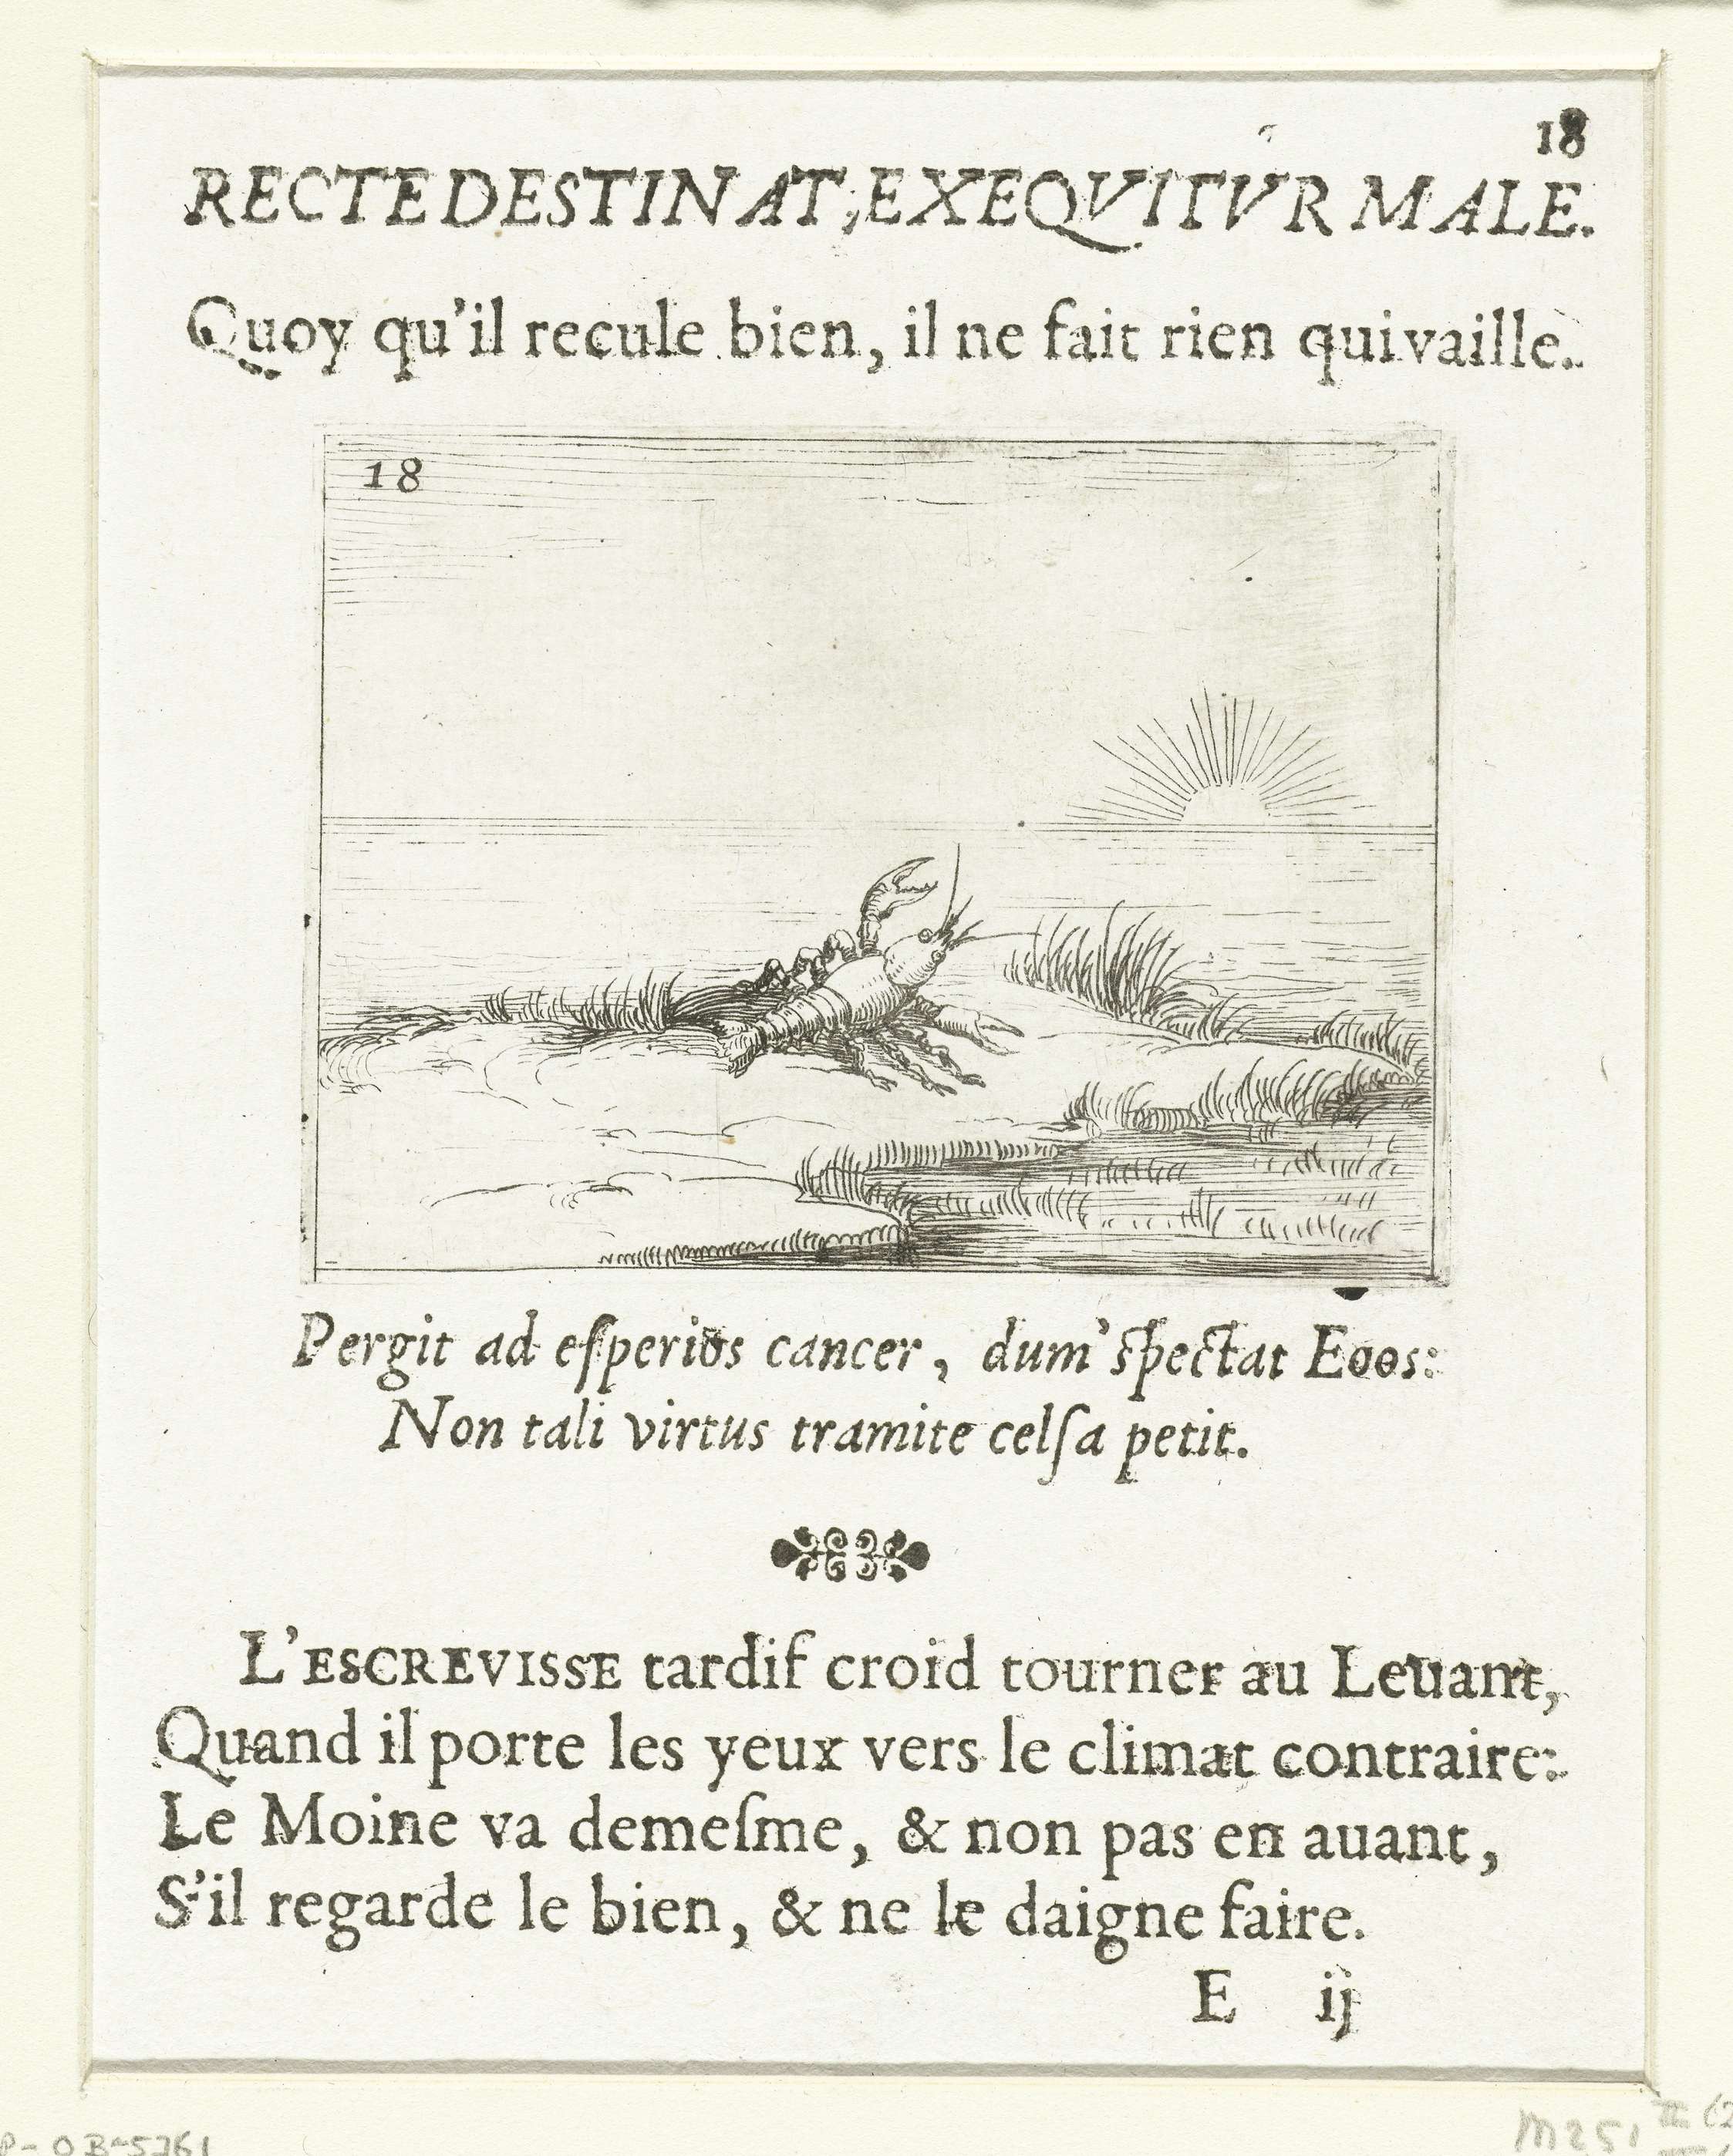 18
RECTE DESTINAT, EXEQVITVR MALE.
Quoy qu'il recule bien, il ne fait rien qui vaille.
18
Pergit ad eſperios cancer, dum ſpectat Eoos:
Non tali virtus tramite celſa petit.
L'ESCREVISSE tardif croid tourner au Leuant,
Quand il porte les yeux vers le climat contraire:
Le Moine va demeſme, & non pas en auant,
S'il regarde le bien, & ne le daigne faire.
E ij
P-OB-5761
M251 II